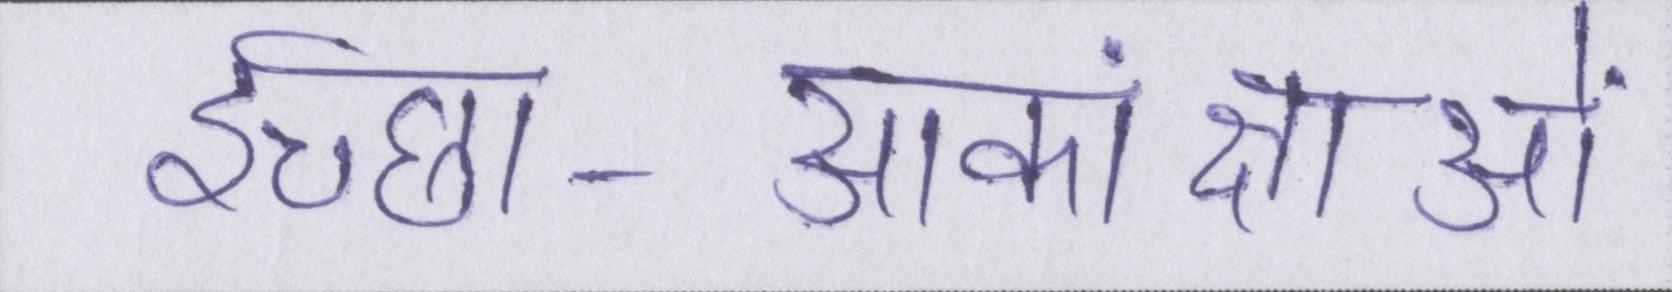 ईच्छा - आकांक्षाओं